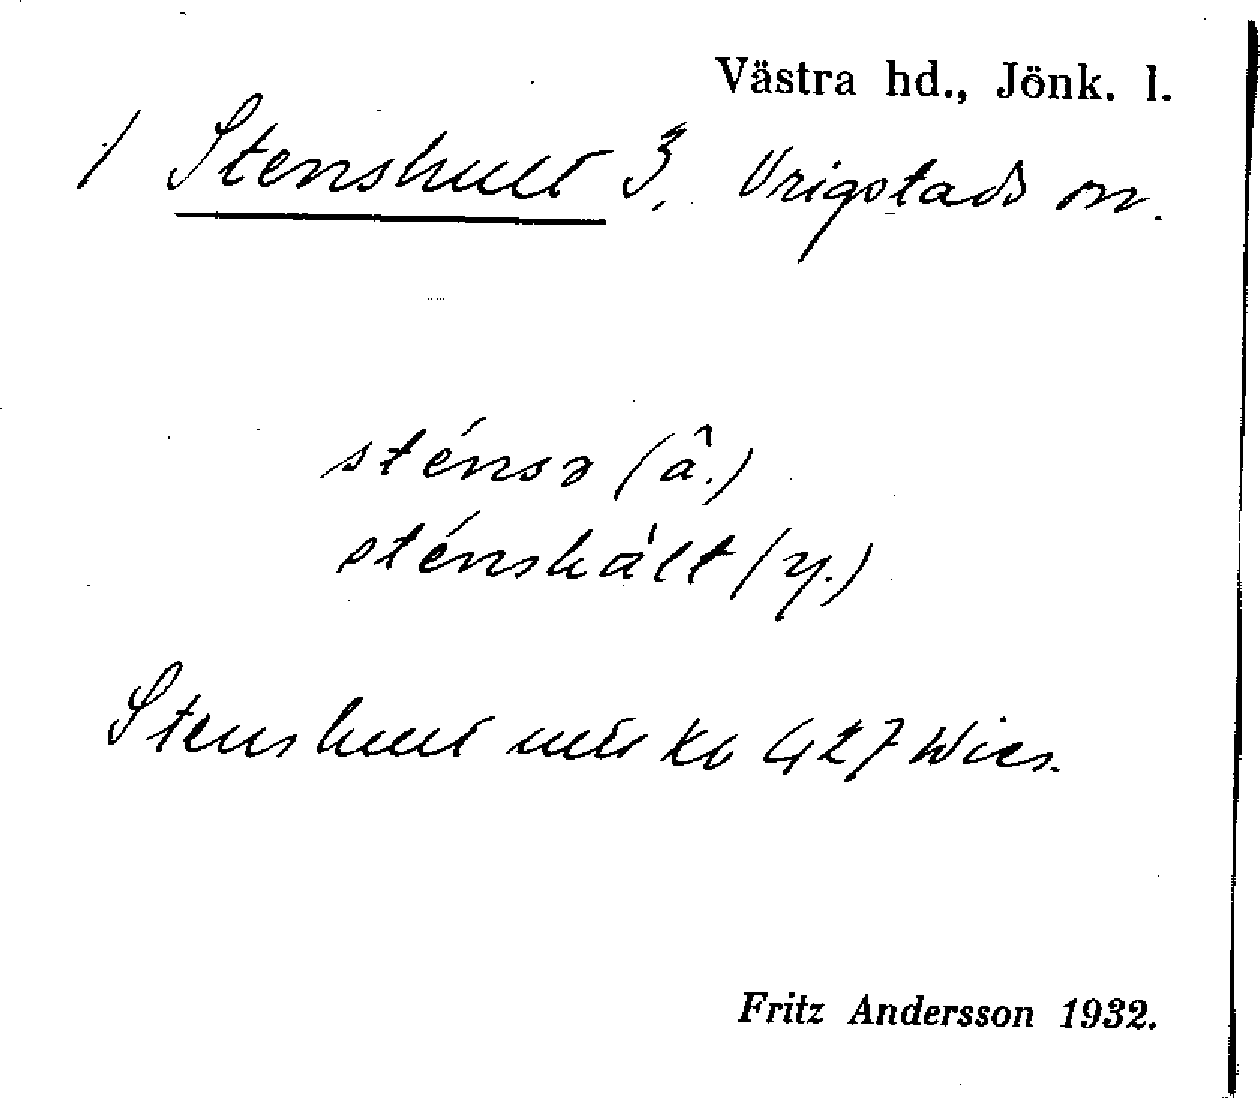 Västra hd., Jönk. l.
1 Stenshult 3. Vrigstads sn.
sténsə (ä.)
sténshàlt (y.)
Stenshult 427 Wies.
Fritz Andersson 1932.